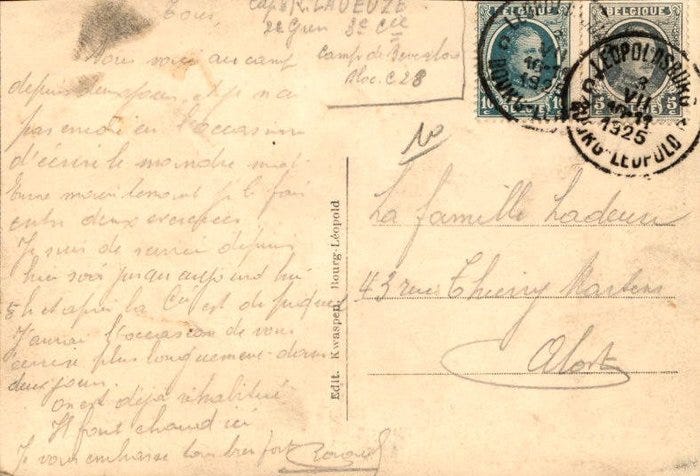 Tous,
Cap. R. LADEUZE
2e Gren 3e Cie
Camp de Beverloo
Bloc. C 28
Nous voici au camp
depuis deux jours et je n'ai
pas encore eu l'occasion
d'écrire le moindre mot.
maintenant je le fais
entre deux exercices.
Je suis de service depuis
hier soir jusqu'aujourd'hui
5h et après la Cie est de piquet
J'aurai l'occasion de vous
écrire plus longuement dans
deux jours.
On est déjà réhabitué
Il fait chaud ici
Je vous embrasse tous bien fort
Edit. Kwaspen, Bourg-Léopold
BELGIQUE
10
BELGIQUE
5
LEOPOLDSBURG
3
VII
1925
BOURG-LEOPOLD
La famille Ladeuze
43 rue Thierry Martens
Alost